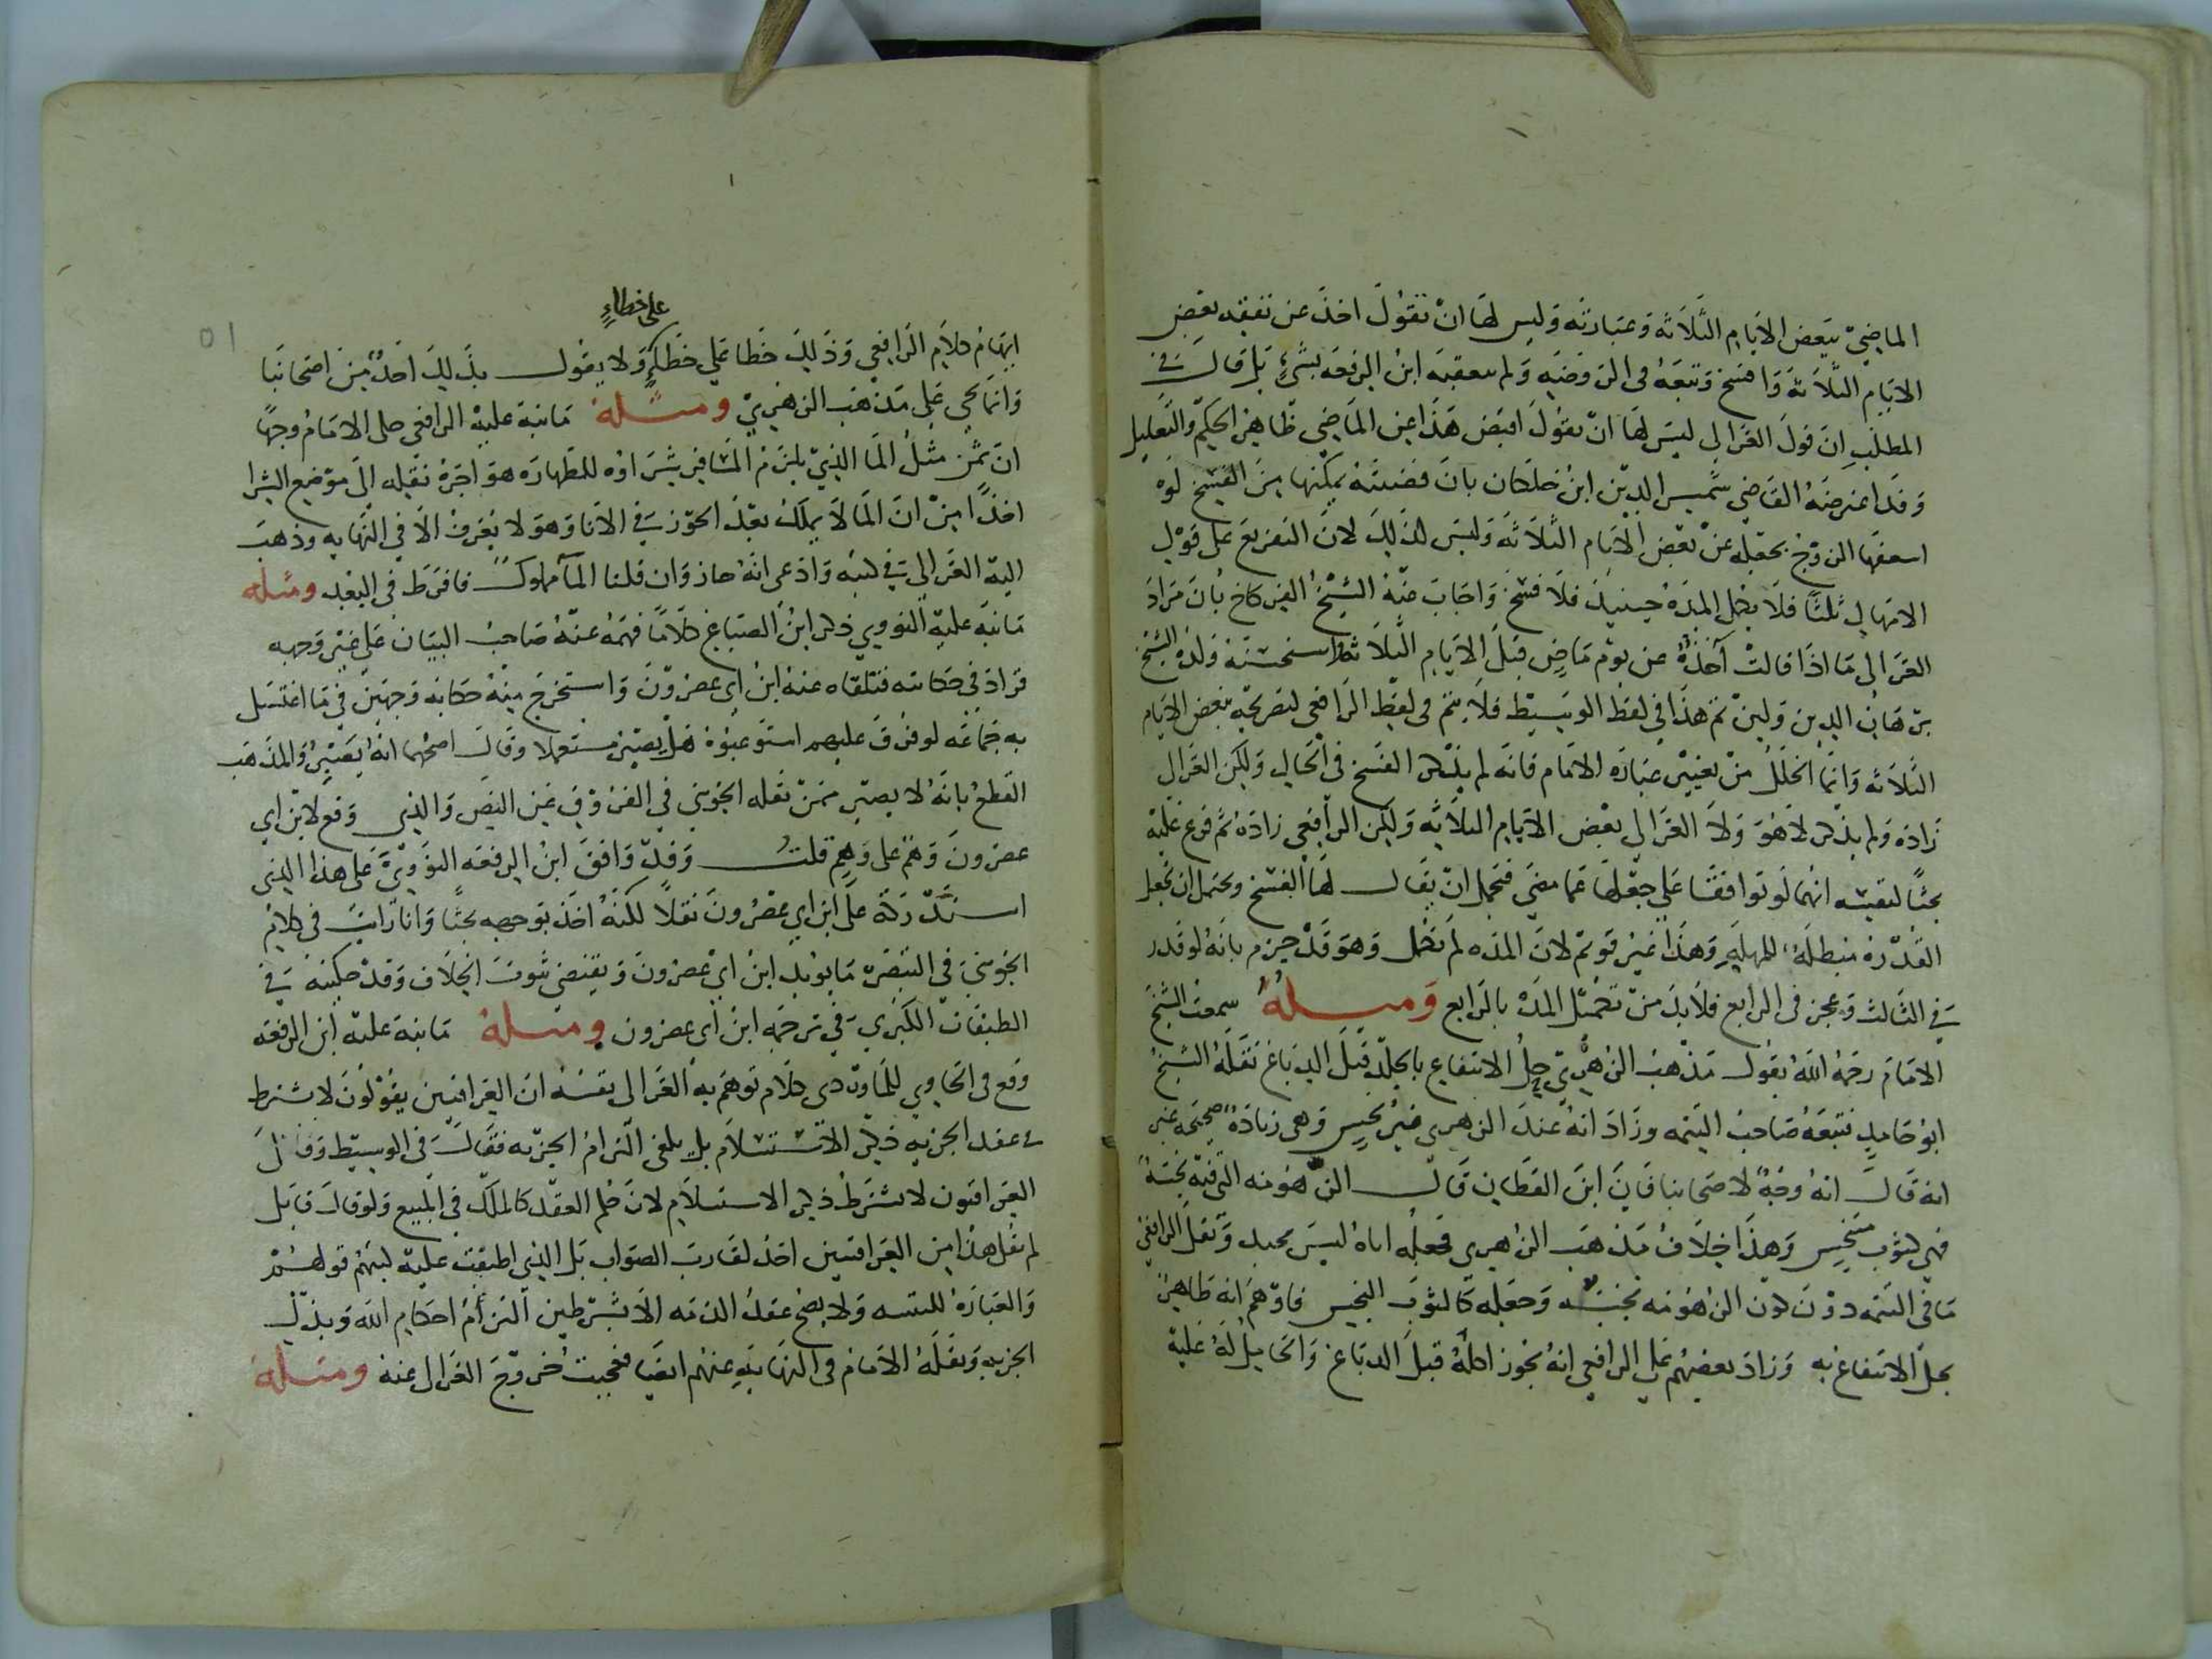 الماضي ببعض الايام الثلاثة وعبارته وليس لها ان تقول اخذ عن نفقه بعض
الايام الثلاثة وافسخ وتبعه في الروضه ولم يتعقبه ابن الرفعه بشيء بل قال في
المطلب ان قول الغزالي ليس لها ان تقول اقبض هذا عن الماضي ظاهر الحكم والتعليل
وقد اعترضه القاضي شمس الدين ابن خلكان بان قضيته تمكنها من الفسخ لو
الزوج بجعله عن بعض الايام الثلاثه وليس كذلك لان التفريع على قول
الامهال ثلثا فلا تكمل المده حينيذ فلا فسخ واجاب عنه الشيخ الفركاح بان مراد
الغزالي ما اذا قالت آخذه عن يوم ماض قبل الايام الثلاثه واستحسنه ولده الشيخ
برهان الدين ولين تم هذا في لفظ الوسيط فلا يتم في لفظ الرافعي لتصريحه ببعض الايام
الثلاثه وانما الخلل من تغيير عباره الامام فانه لم يذكر الفسخ في الحال ولكن الغزالي
زاده ولم يذكر لا هو ولا الغزالي بعض الايام الثلاثه ولكن الرافعي زاده ثم فرع عليه
بحثا لنفسه انهما لو توافقا على جعلها عما مضى فيحتمل ان يقال لها الفسخ ويحتمل ان تجعل
القدره مبطله للمهله وهذا غير قويم لان المده لم تكمل وهو قد جزم بانه لو قدر
في الثالث وعجز في الرابع فلا بد من تكميل المده بالرابع ومسلة سمعت الشيخ
الامام رحمه الله يقول مذهب الزهري حل الانتفاع بالجلد قبل الدباغ نقله الشيخ
ابو حامد فتبعه صاحب التتمه وزاد انه عند الزهري غير نجس وهى زياده صحيحه غير
انه قال انه وجه لاصحابنا فان ابن القطان قال الزهومه التي فيه نجسة
فهي كثوب متنجس وهذا خلاف مذهب الزهري فجعله اياه ليس بجيد ونقل الرافعي
ما في التتمه دون كون الزهومه نجسه وجعله كالثوب النجس فاوهم انه طاهر
يحل الانتفاع به وزاد بعضهم على الرافعي انه يجوز اكله قبل الدباغ والحامل له عليه
على خطاء
ايهام كلام الرافعي وذلك خطا على ولا يقول بذلك احد من اصحابنا
وانما يجي على مذهب الزهري ومسلة ما نبه عليه الرافعي حكى الامام وجها
ان ثمن مثل الما الذي يلزم المسافر شراوه للطهاره هو اجرة نقله الى موضع الشرا
اخذا من ان الما لا يملك بعد الحوز في الانا وهو لا يعرف الا في النهايه وذهب
اليه الغزالي في كتبه وادعى انه جار وان قلنا الما مملوك فافرط في البعد ومسله
ما نبه عليه النووي ذكر ابن الصباغ كلاما فهمه عنه صاحب البيان على غير وجهه
فزاد في حكايته فتلقاه عنه ابن ابي عصرون واستخرج منه حكايه وجهين في ما اغتسل
به جماعه لو فرق عليهم استوعبوه هل يصير مستعملا وقال اصحهما انه يصير والمذهب
القطع بانه لا يصير ممن نقله الجويني في الفروق عن النص والذي وقع لابن ابي
عصرون وهم على وهم قلت وقد وافق ابن الرفعه النووي على هذا الذي
استدركه على ابن ابي عصرون نقلا لكنه اخذ بوجهه بحثا وانا رايت في كلام
الجويني في التبصره ما يويد ابن ابي عصرون ويقتضي ثبوت الخلاف وقد حكيته في
الطبقات الكبرى في ترجمه ابن ابي عصرون ومسلة ما نبه عليه ابن الرفعه
وقع في الحاوي للماوردي كلام توهم به الغزالي نفسه ان العراقيين يقولون لا يشترط
في عقد الجزيه ذكر الاستسلام بل يكفى التزام الجزيه فقال في الوسيط وقال
العراقيون لا يشترط ذكر الاستسلام لان حكم العقد كالملك في المبيع ولو قال قايل
لم يقل هذا من العراقيين احد لقارب الصواب بل الذي اطبقت عليه كتبهم قولهم
والعباره للتنبيه ولا يصح عقد الذمه الا بشرطين التزام احكام الله وبذل
الجزيه ونقله الامام في النهايه عنهم ايضا فعجبت خروج الغزالي عنه ومسلة